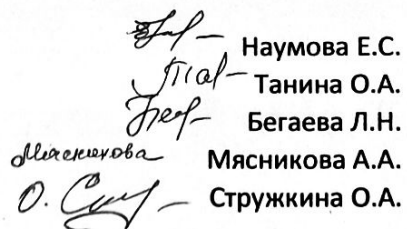 Наумова Е.С.
Танина О.А.
Бегаева Л.Н.
Мясникова Мясникова А.А.
Стружкина О.А.